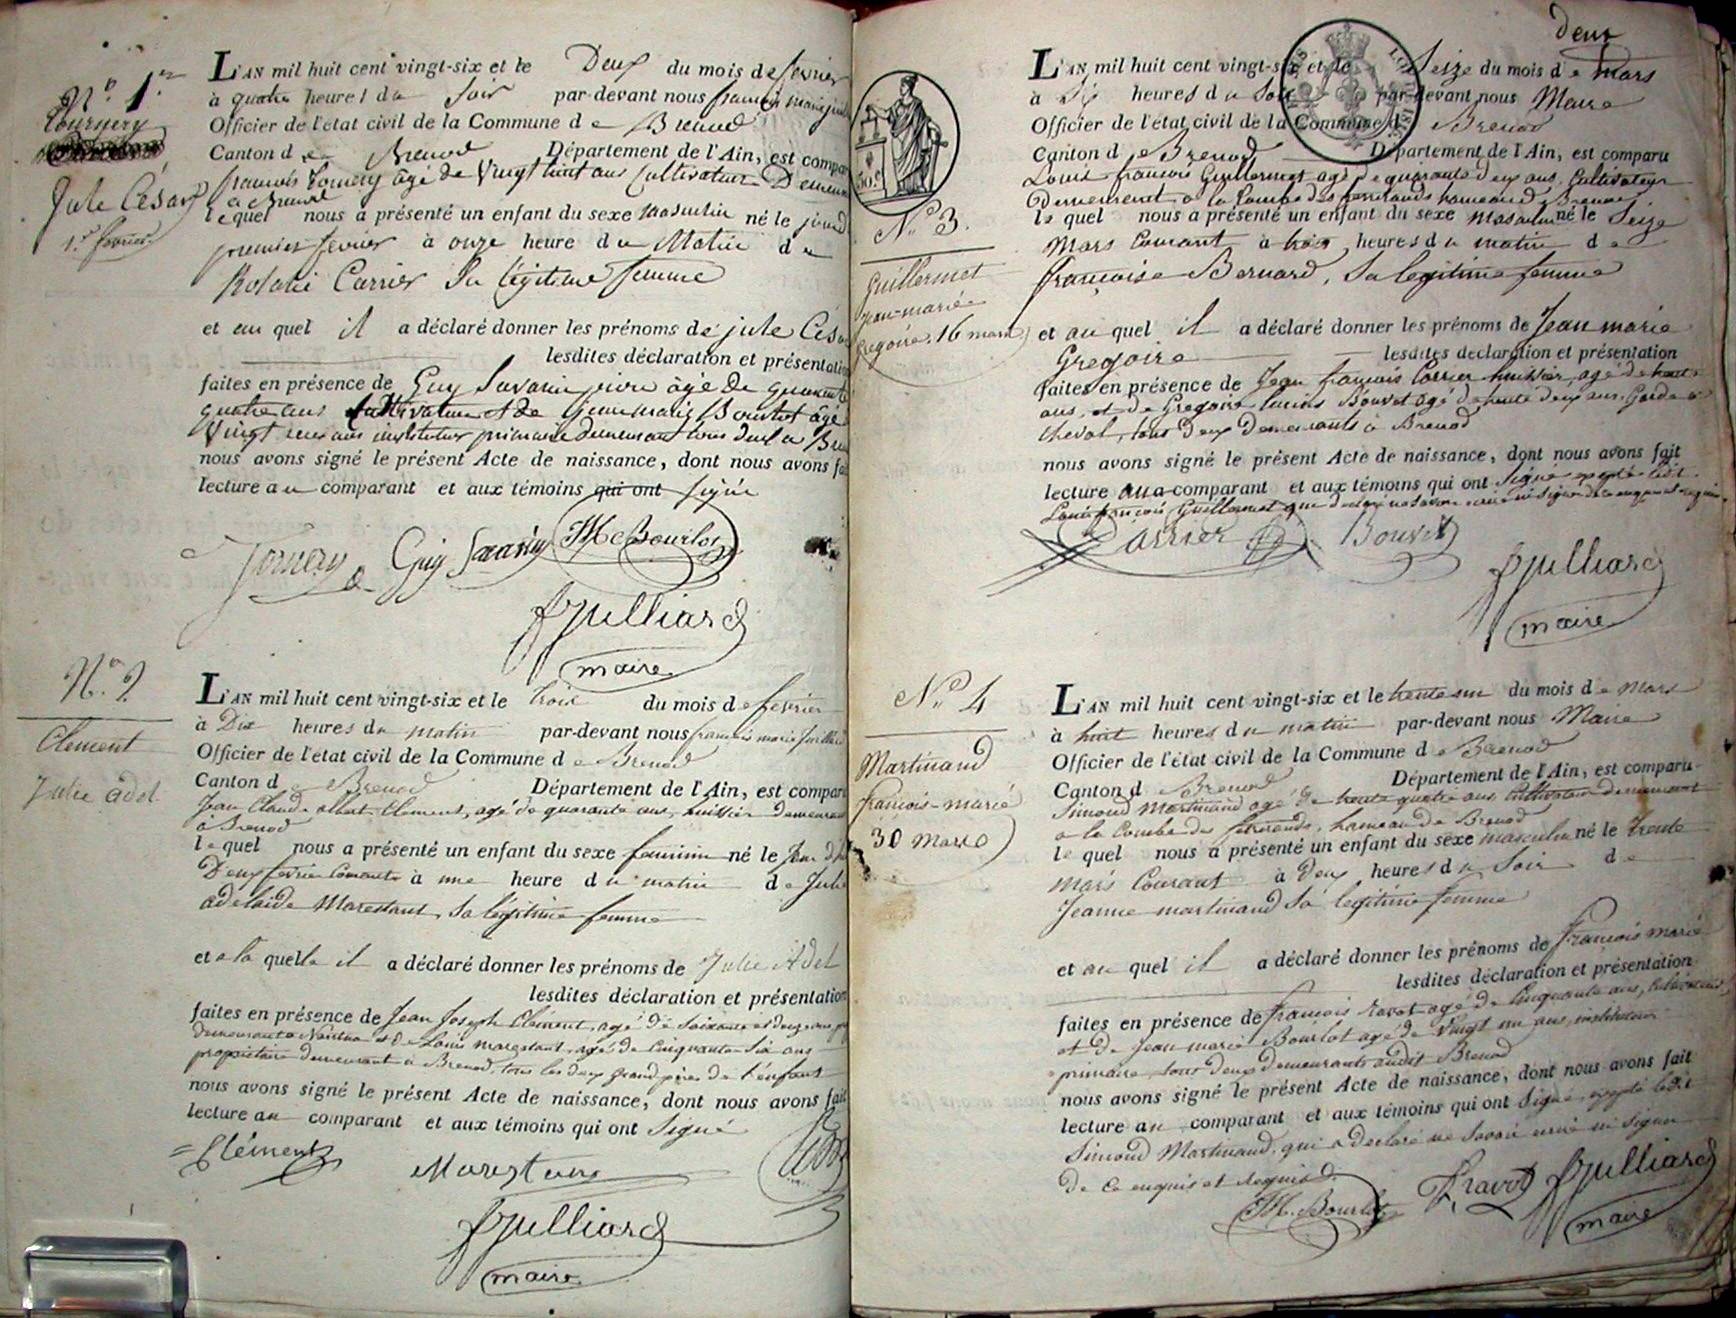 N.º 1.er
Tournery
Jule César
1.er fevrier
L'AN mil huit cent vingt-six et le Deux du mois de fevrier
à quatre heures du Soir par-devant nous françois marie
Officier de l'état civil de la Commune de Brenod
Canton de Brenod Département de l'Ain, est compar
françois âgé de Vingt huit ans Cultivateur
à Brenod
lequel nous a présenté un enfant du sexe masculin né le
premier fevrier à onze heure du Matin de
Rosalie Carrier Sa légitime femme
et au quel il a déclaré donner les prénoms de jule César
lesdites déclaration et présentation
faites en présence de Guy Savarin âgé de quarante
quatre ans Cultivateur et de jean marie Bourlot âgé
Vingt ans instituteur primaire demeurant tous deux à
nous avons signé le présent Acte de naissance, dont nous avons fai
lecture au comparant et aux témoins qui ont signé
Guy Savarin JM Bourlot
fJulliard
maire
N.º 2
Clement
Julie adel.
L'AN mil huit cent vingt-six et le trois du mois de fevrier
à Dix heures du matin par-devant nous francois marie Juillard
Officier de l'état civil de la Commune de Brenod
Canton de Brenod Département de l'Ain, est comparu
Jean Claude albert Clement, agé de quarante ans, huissier demeurant
à Brenod
lequel nous a présenté un enfant du sexe feminin né le
Deux fevrier Courant à une heure du matin de Julie
adelaide Marestant, sa légitime femme
et a la quelle il a déclaré donner les prénoms de Julie Adel
lesdites déclaration et présentation
faites en présence de Jean Joseph Clément, agé de Soixante et douze ans
demeurant a Nantua et de Louis marestant, agé de Cinquante Six ans
propriétaire demeurant à Brenod, tous les deux grand pères de l'enfant
nous avons signé le présent Acte de naissance, dont nous avons fait
lecture au comparant et aux témoins qui ont Signé
Clément Marestans
fJulliard
maire
deux
30.c
N.º 3.
Guillermet
jean-marie
gregoire. 16 mars
L'AN mil huit cent vingt-six et le Seize du mois de Mars
à Six heures du Soir par-devant nous Maire
Officier de l'état civil de la Commune de Brenod
Canton de Brenod Département de l'Ain, est comparu
Louis françois Guillermet agé de quarante deux ans, Cultivateur
Demeurant a la Combe des ferrands hameau de Brenod
le quel nous a présenté un enfant du sexe masculin né le Seize
Mars Courant à trois heures du matin de
françoise Bernard, Sa legitime femme
et au quel il a déclaré donner les prénoms de Jean marie
Gregoire lesdites déclaration et présentation
faites en présence de Jean françois Carrier huissier, agé de trente
ans, et de Gregoire Bouvet agé de trente deux ans, Garde à
cheval, tous deux demeurants à Brenod
nous avons signé le présent Acte de naissance, dont nous avons fait
lecture au comparant et aux témoins qui ont Signé excepté ledit
Louis françois Guillermet
Carrier Bouvet
fJulliard
maire
N.º 4
Martinand
françois-marie
30 Mars
L'AN mil huit cent vingt-six et le trente un du mois de Mars
à huit heures du matin par-devant nous Maire
Officier de l'état civil de la Commune de Brenod
Canton de Brenod Département de l'Ain, est comparu
Simond Martinand agé de trente quatre ans Cultivateur demeurant
a la Combe des ferrands, hameau de Brenod
le quel nous a présenté un enfant du sexe masculin né le trente
mars Courant à Deux heures du Soir de
Jeanne martinand Sa legitime femme
et au quel il a déclaré donner les prénoms de françois marie
lesdites déclaration et présentation
faites en présence de francois ravot agé de Cinquante ans, cultivateur
et de jean marie Bourlot agé de Vingt un ans, instituteur
primaire, tous deux demeurants audit Brenod
nous avons signé le présent Acte de naissance, dont nous avons fait
lecture au comparant et aux témoins qui ont Signé, excepté ledit
Simond Martinand, qui a declaré ne Savoir écrire ni signer
de ce enquis et requis
JM. Bourlot F. ravot fJulliard
maire